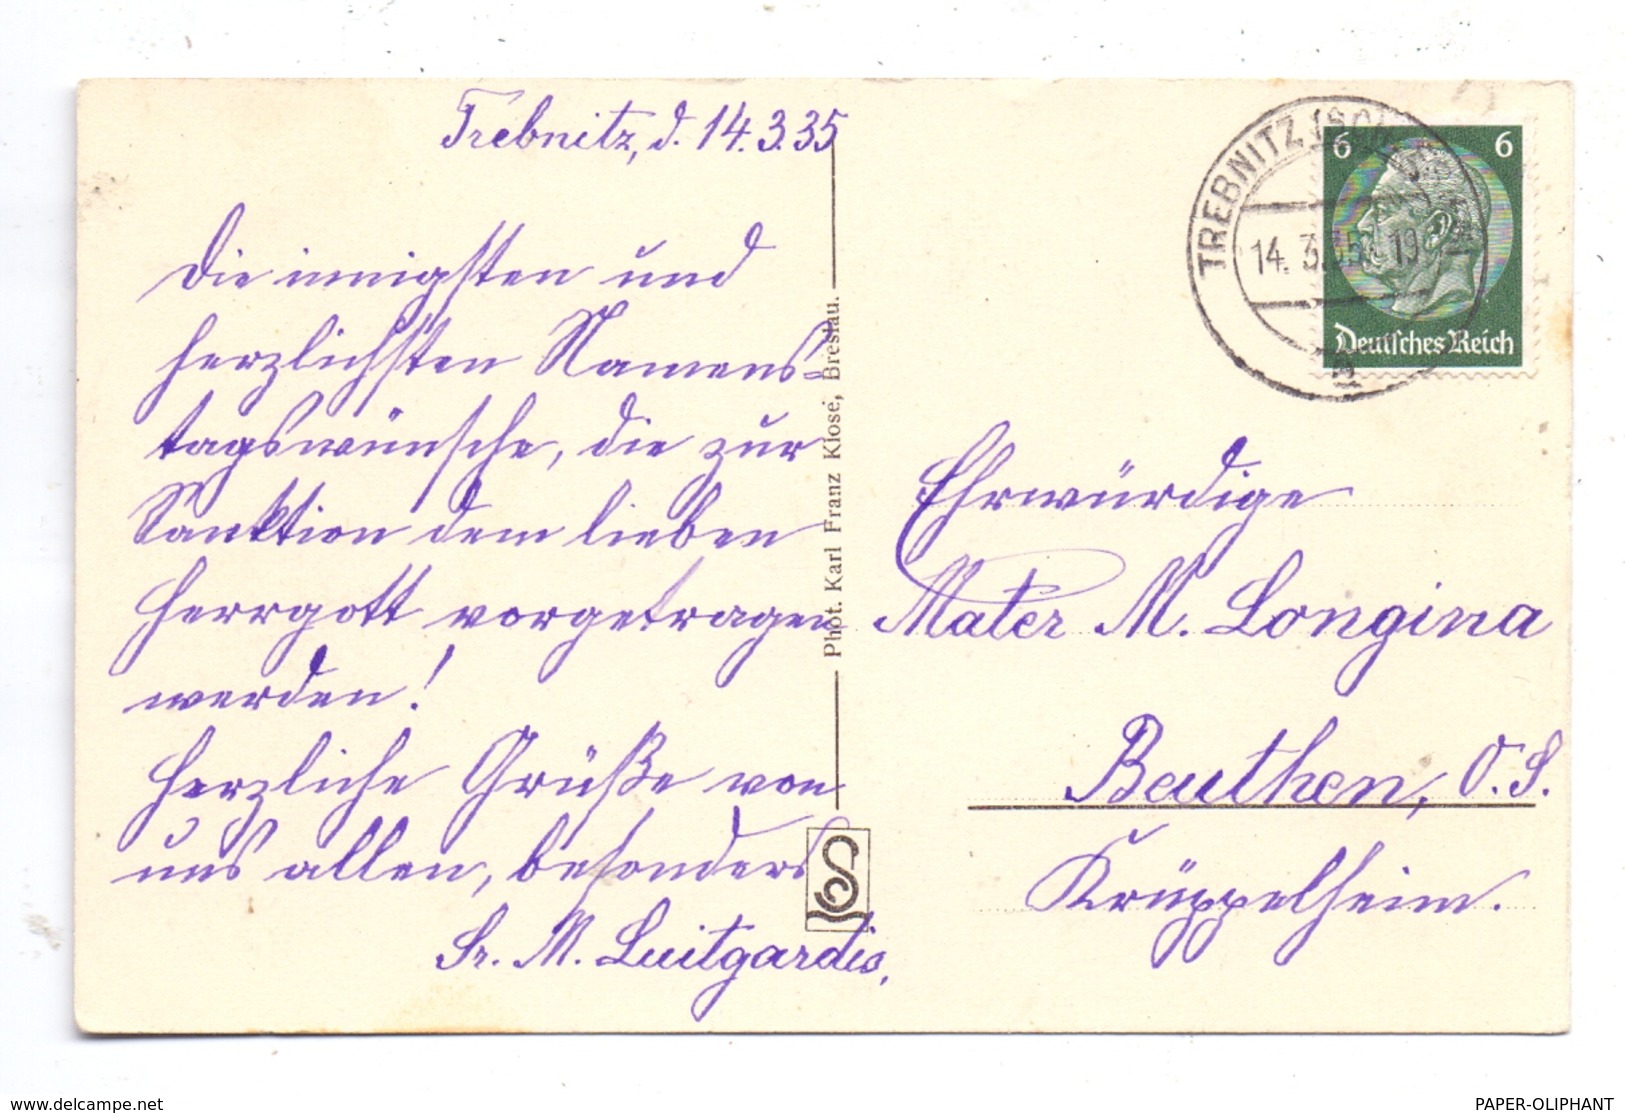 Trebnitz, d. 14.3.35
Die innigsten und
herzlichsten Namens-
tagswünsche, die zur
Sanktion dem lieben
Herrgott vorgetragen
werden!
Herzliche Grüße von
uns allen, besonders
Sr. M. Luitgardis,
Phot. Karl Franz Klose, Breslau.
TREBNITZ
14. 3.35. 19
6 6
Deutsches Reich
Ehrwürdige
Mater M. Longina
Beuthen, O.S.
Krüppelheim.
www.delcampe.net
PAPER-OLIPHANT